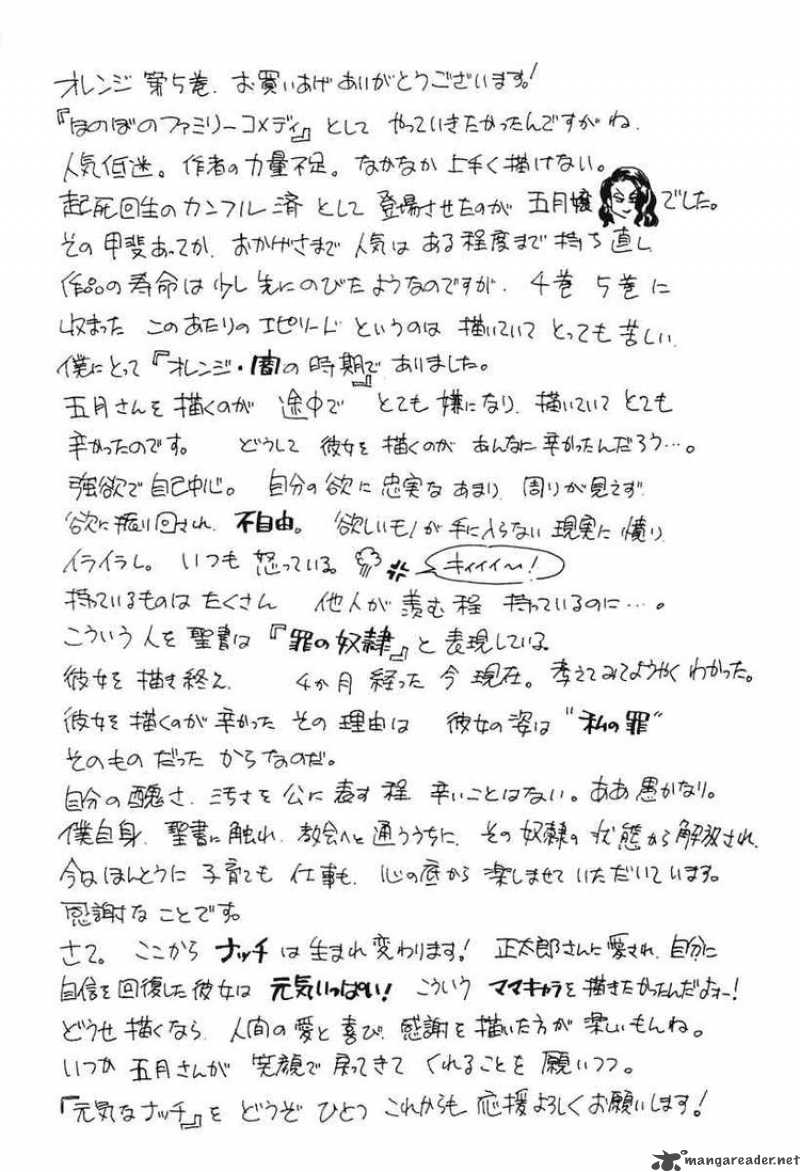 オレンジ 第5巻、お買いあげありがとうございます!
『ほのぼのファミリーコメディ』として やっていきたかったんですがね、
人気低迷。作者の力量不足。なかなか上手く描けない。
起死回生のカンフル済として 登場させたのが 五月嬢でした。
その甲斐あってか、おかげさまで人気は ある程度まで持ち直し
作品の寿命は少し先にのびたようなのですが、4巻 5巻に
収まった このあたりのエピソード というのは 描いていて とっても苦しい、
僕にとって『オレンジ・闇の時期』でありました。
五月さんを描くのが 途中で とても嫌になり、描いていて とても
辛かったのです。 どうして 彼女を描くのが あんなに辛かったんだろう…。
強欲で自己中心。 自分の欲に忠実なあまり 周りが見えず
欲に振り回され、不自由。 欲しいモノが手に入らない現実に憤り
イライラし。 いつも怒っている。 キィィィ〜!
持っているものはたくさん 他人が羨む程 持っているのに…。
こういう人を聖書は『罪の奴隷』と表現している。
彼女を描き終え、 4か月経った今現在。 考えてみてようやくわかった。
彼女を描くのが辛かった その理由は 彼女の姿は “私の罪”
そのものだった からなのだ。
自分の醜さ、汚さを公に表す程 辛いことはない。ああ愚かなり。
僕自身、聖書に触れ、教会へと通ううちに、その奴隷の状態から解放され、
今はほんとうに 子育ても 仕事も、心の底から 楽しませていただいています。
感謝なことです。
さて。 ここから ナッチは生まれ変わります! 正太郎さんに愛され、自分に
自信を回復した彼女は 元気いっぱい! こういう ママキャラを描きたかったんだよォー!
どうせ描くなら、人間の愛と喜び、感謝を描いた方が 楽しいもんね。
いつか 五月さんが 笑顔で戻ってきて くれることを願いつつ。
『元気なナッチ』を どうぞ ひとつ これからも 応援よろしくお願いします!
mangareader.net